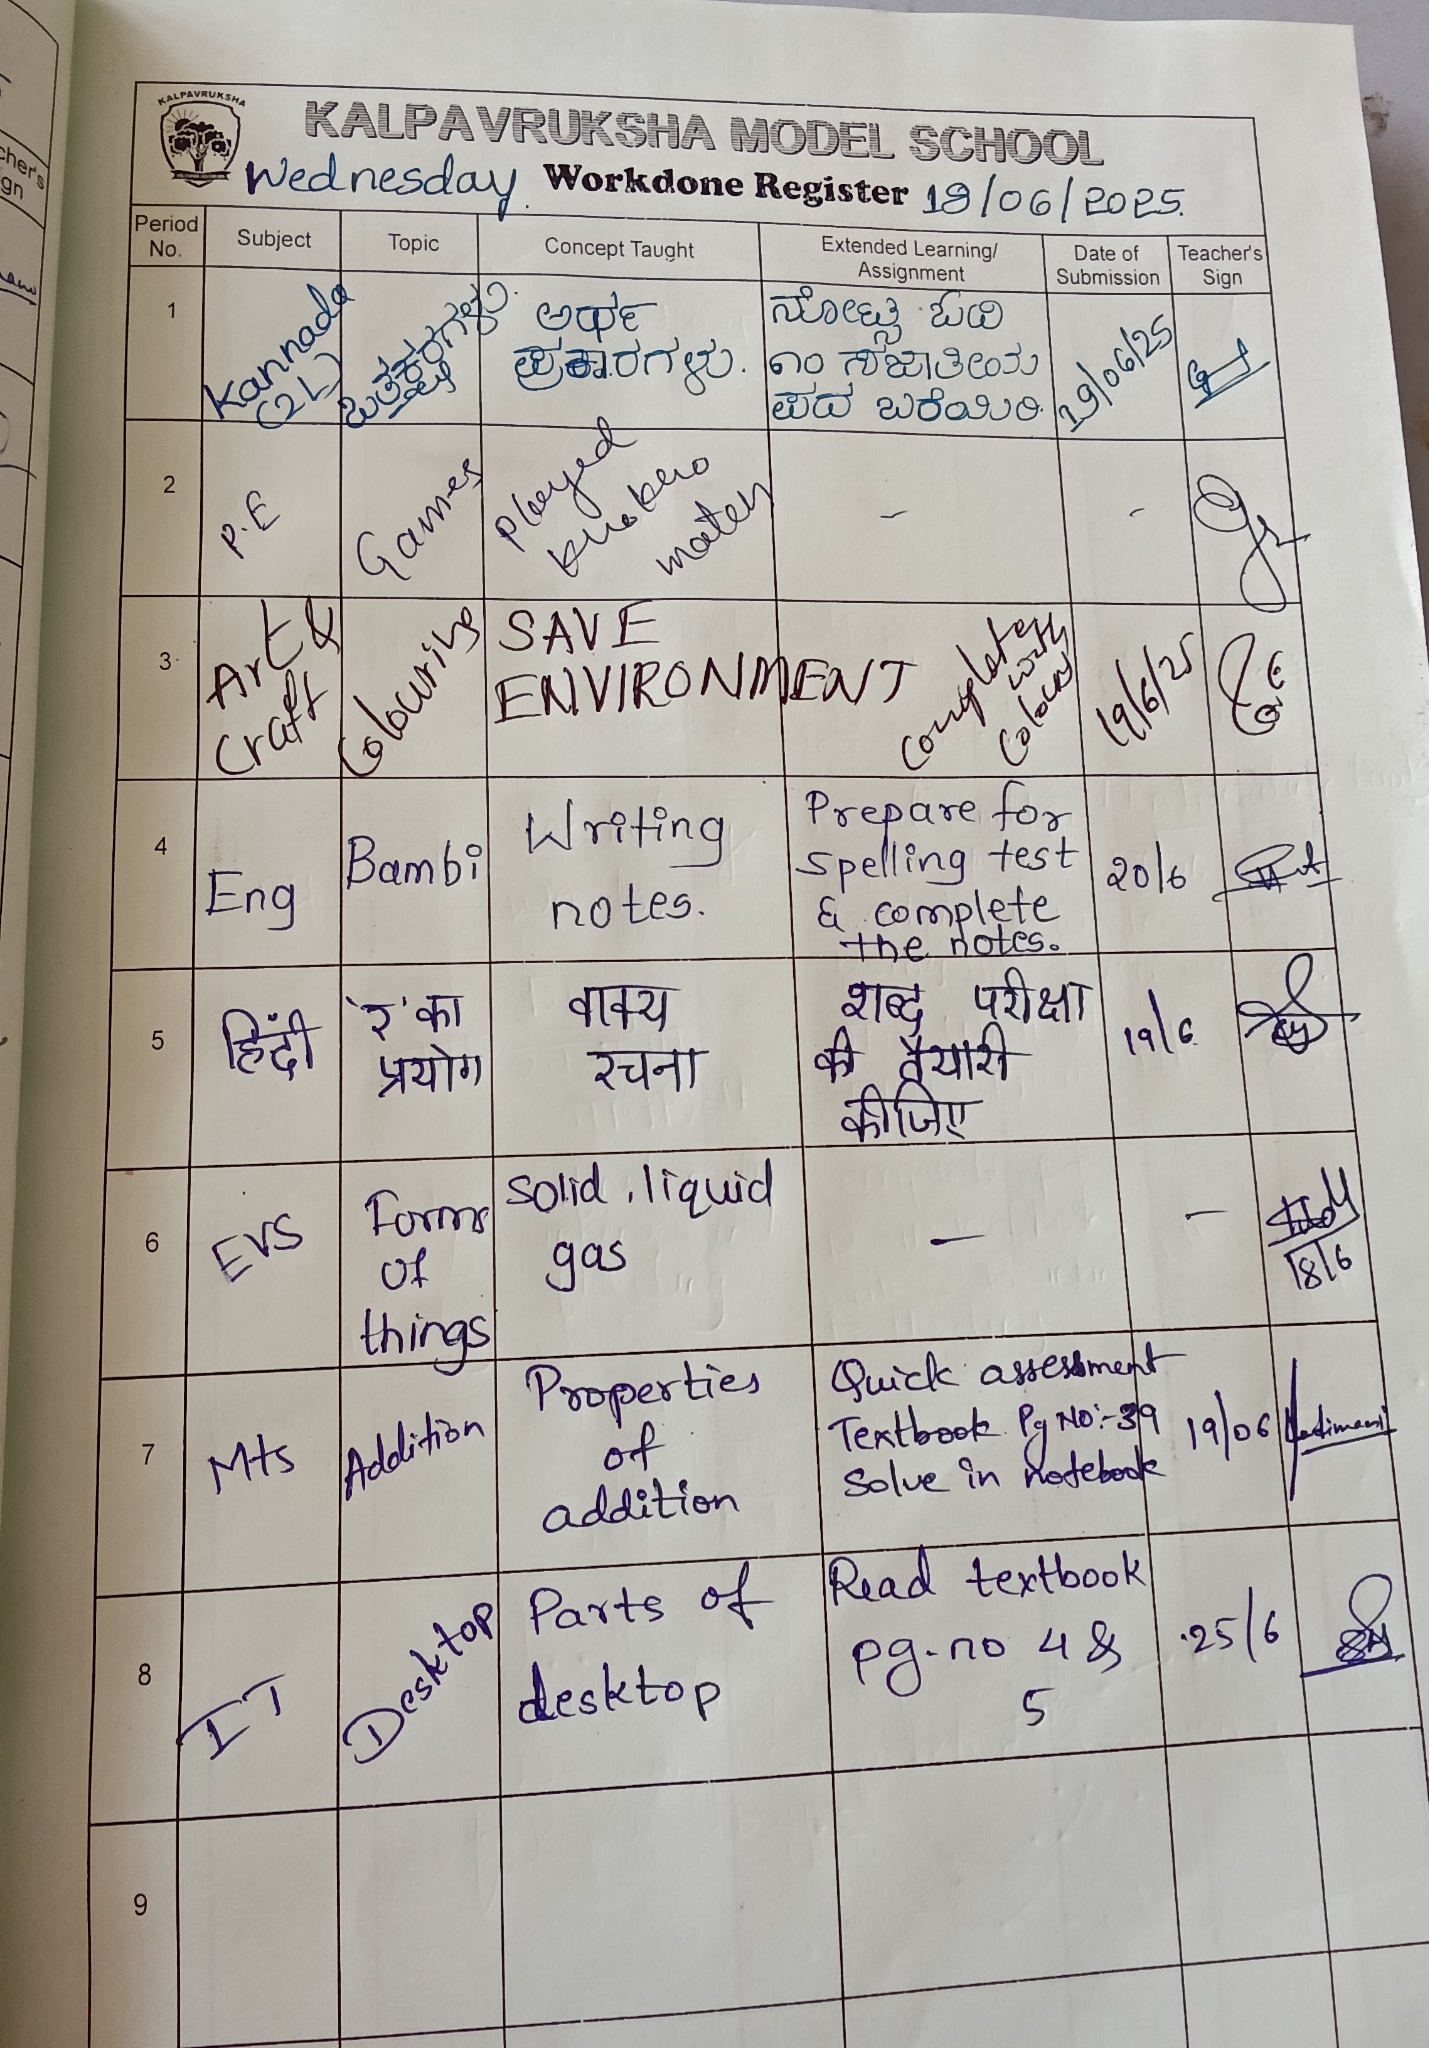 KALPAVRUKSHA
KALPAVRUKSHA MODEL SCHOOL
Wednesday Workdone Register 18/06/2025.
Period No. Subject Topic Concept Taught Extended Learning/ Assignment Date of Submission Teacher's Sign
1 Kannada (2L) ಒತ್ತಕ್ಷರಗಳು. ಅರ್ಥ ಪ್ರಕಾರಗಳು. ನೋಟ್ಸ ಓದಿ ೧೦ ಸಜಾತೀಯ ಪದ ಬರೆಯಿರಿ. 19/06/25
2 P.E Games played kho kho match - -
3 Art & Craft Colouring SAVE ENVIRONMENT complete with colours 19/6/25
4 Eng Bambi Writing notes. Prepare for spelling test & complete the notes. 20/6
5 हिंदी 'र' का प्रयोग वाक्य रचना शब्द परीक्षा की तैयारी कीजिए 19/6
6 EVS Forms of things solid, liquid gas - - 18/6
7 Mts Addition Properties of addition Quick assessment Textbook Pg No:-39 Solve in notebook 19/06
8 IT Desktop Parts of desktop Read textbook pg.no 4 & 5 25/6
9